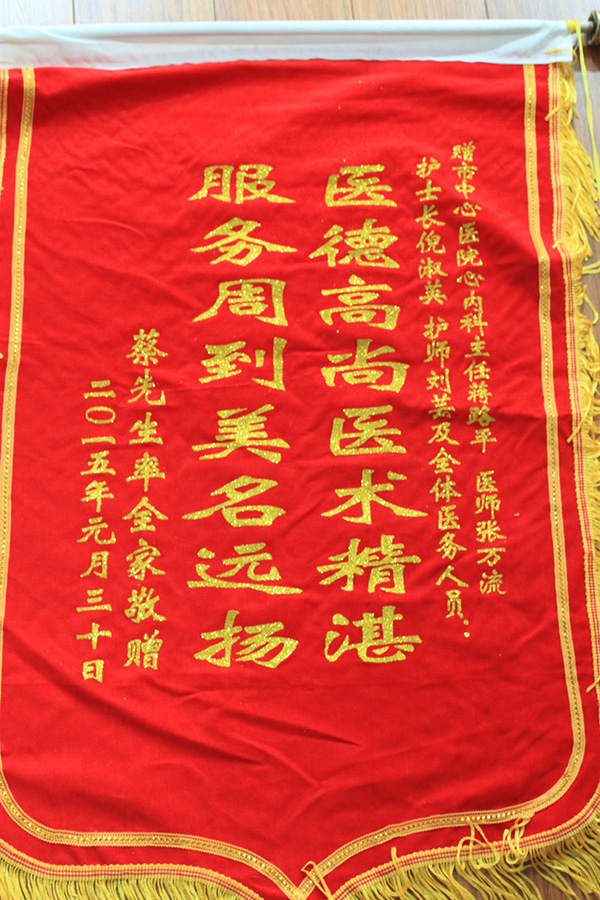 赠市中心医院心内科主任蒋路平 医师张万流
护士长倪淑英 护师刘芸及全体医务人员：
医德高尚医术精湛
服务周到美名远扬
蔡先生率全家敬赠
二〇一五年元月三十日